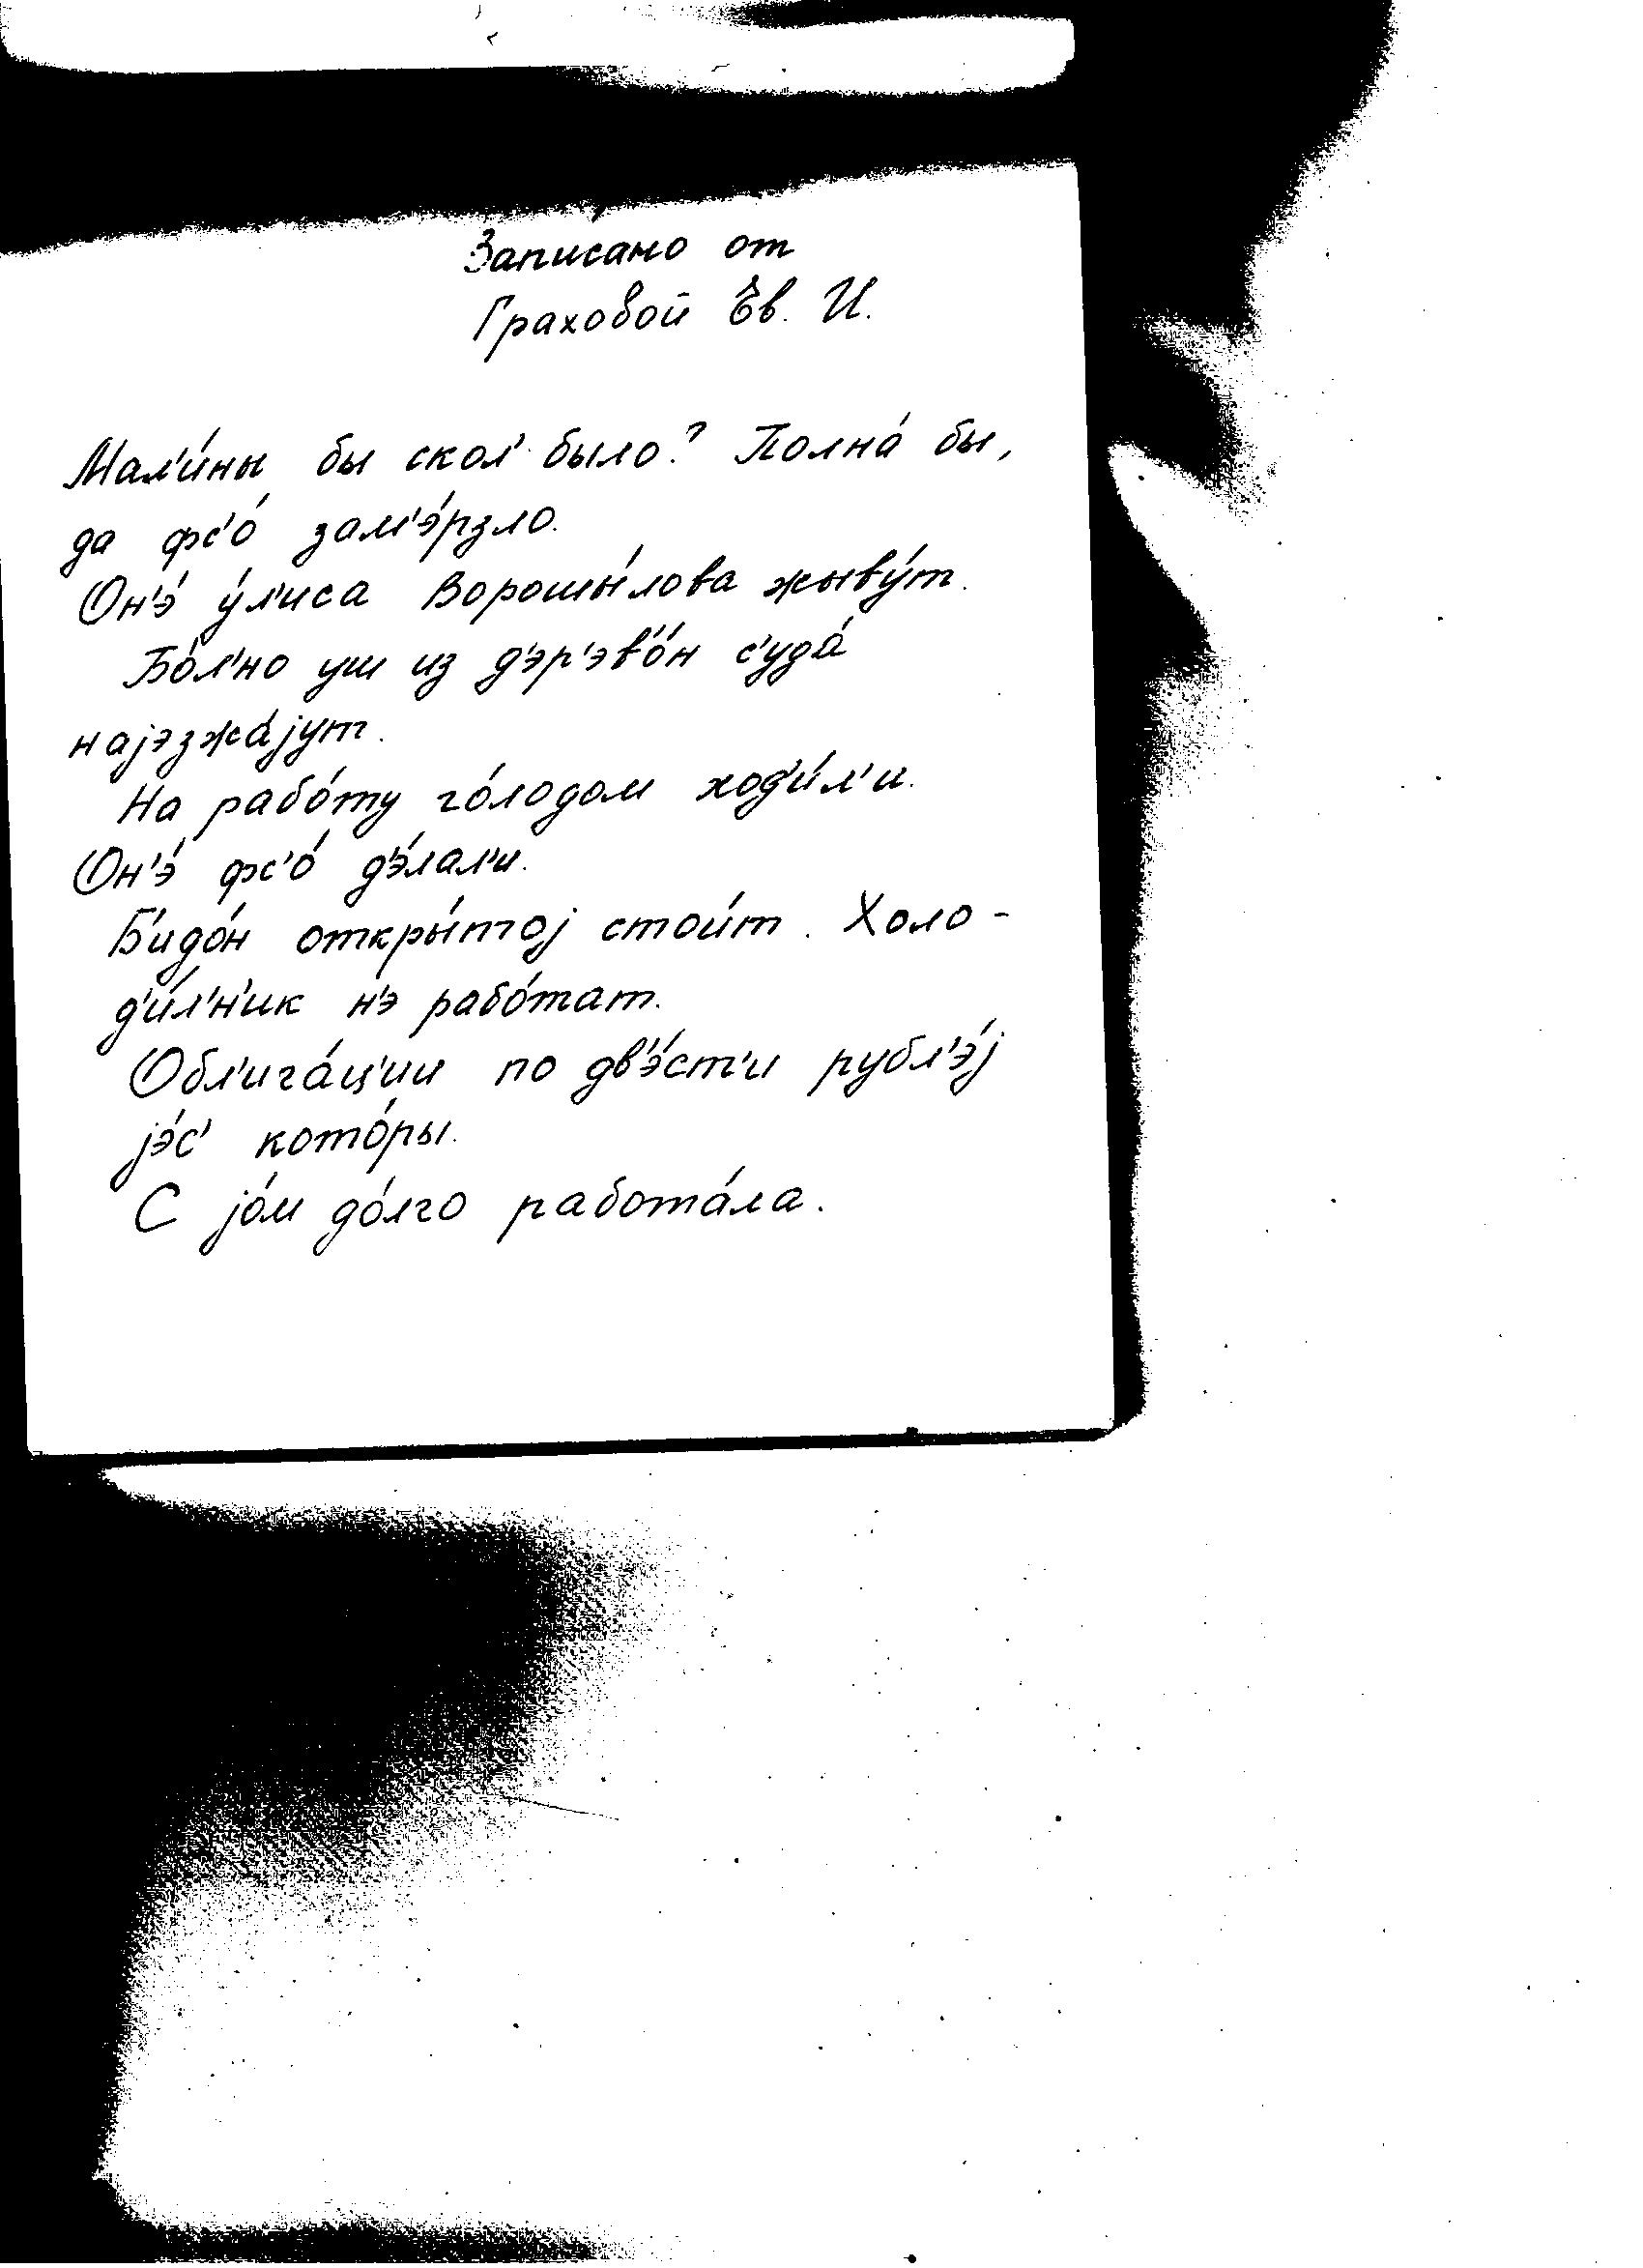 Записано от
Граховой Ев. И.
Мал'и́ны бы скол' было? Полна́ бы,
да фс'о́ зам'э́рзло.
Он'э́ у́л'иса Ворошы́лова жыву́т.
Бо́л'но уш из д'эр'эв'о́н с'уда́
најэзжа́јут.
На рабо́ту го́лодом ход'и́л'и.
Он'э́ фс'о́ д'э́лал'и.
Б'идо́н откры́тој стои́т. Холо-
д'и́л'н'ик н'э рабо́тат.
Обл'ига́ц'ии по дв'э́ст'и рубл'э́ј
јэ́с' кото́ры.
С јо́м до́лго работа́ла.